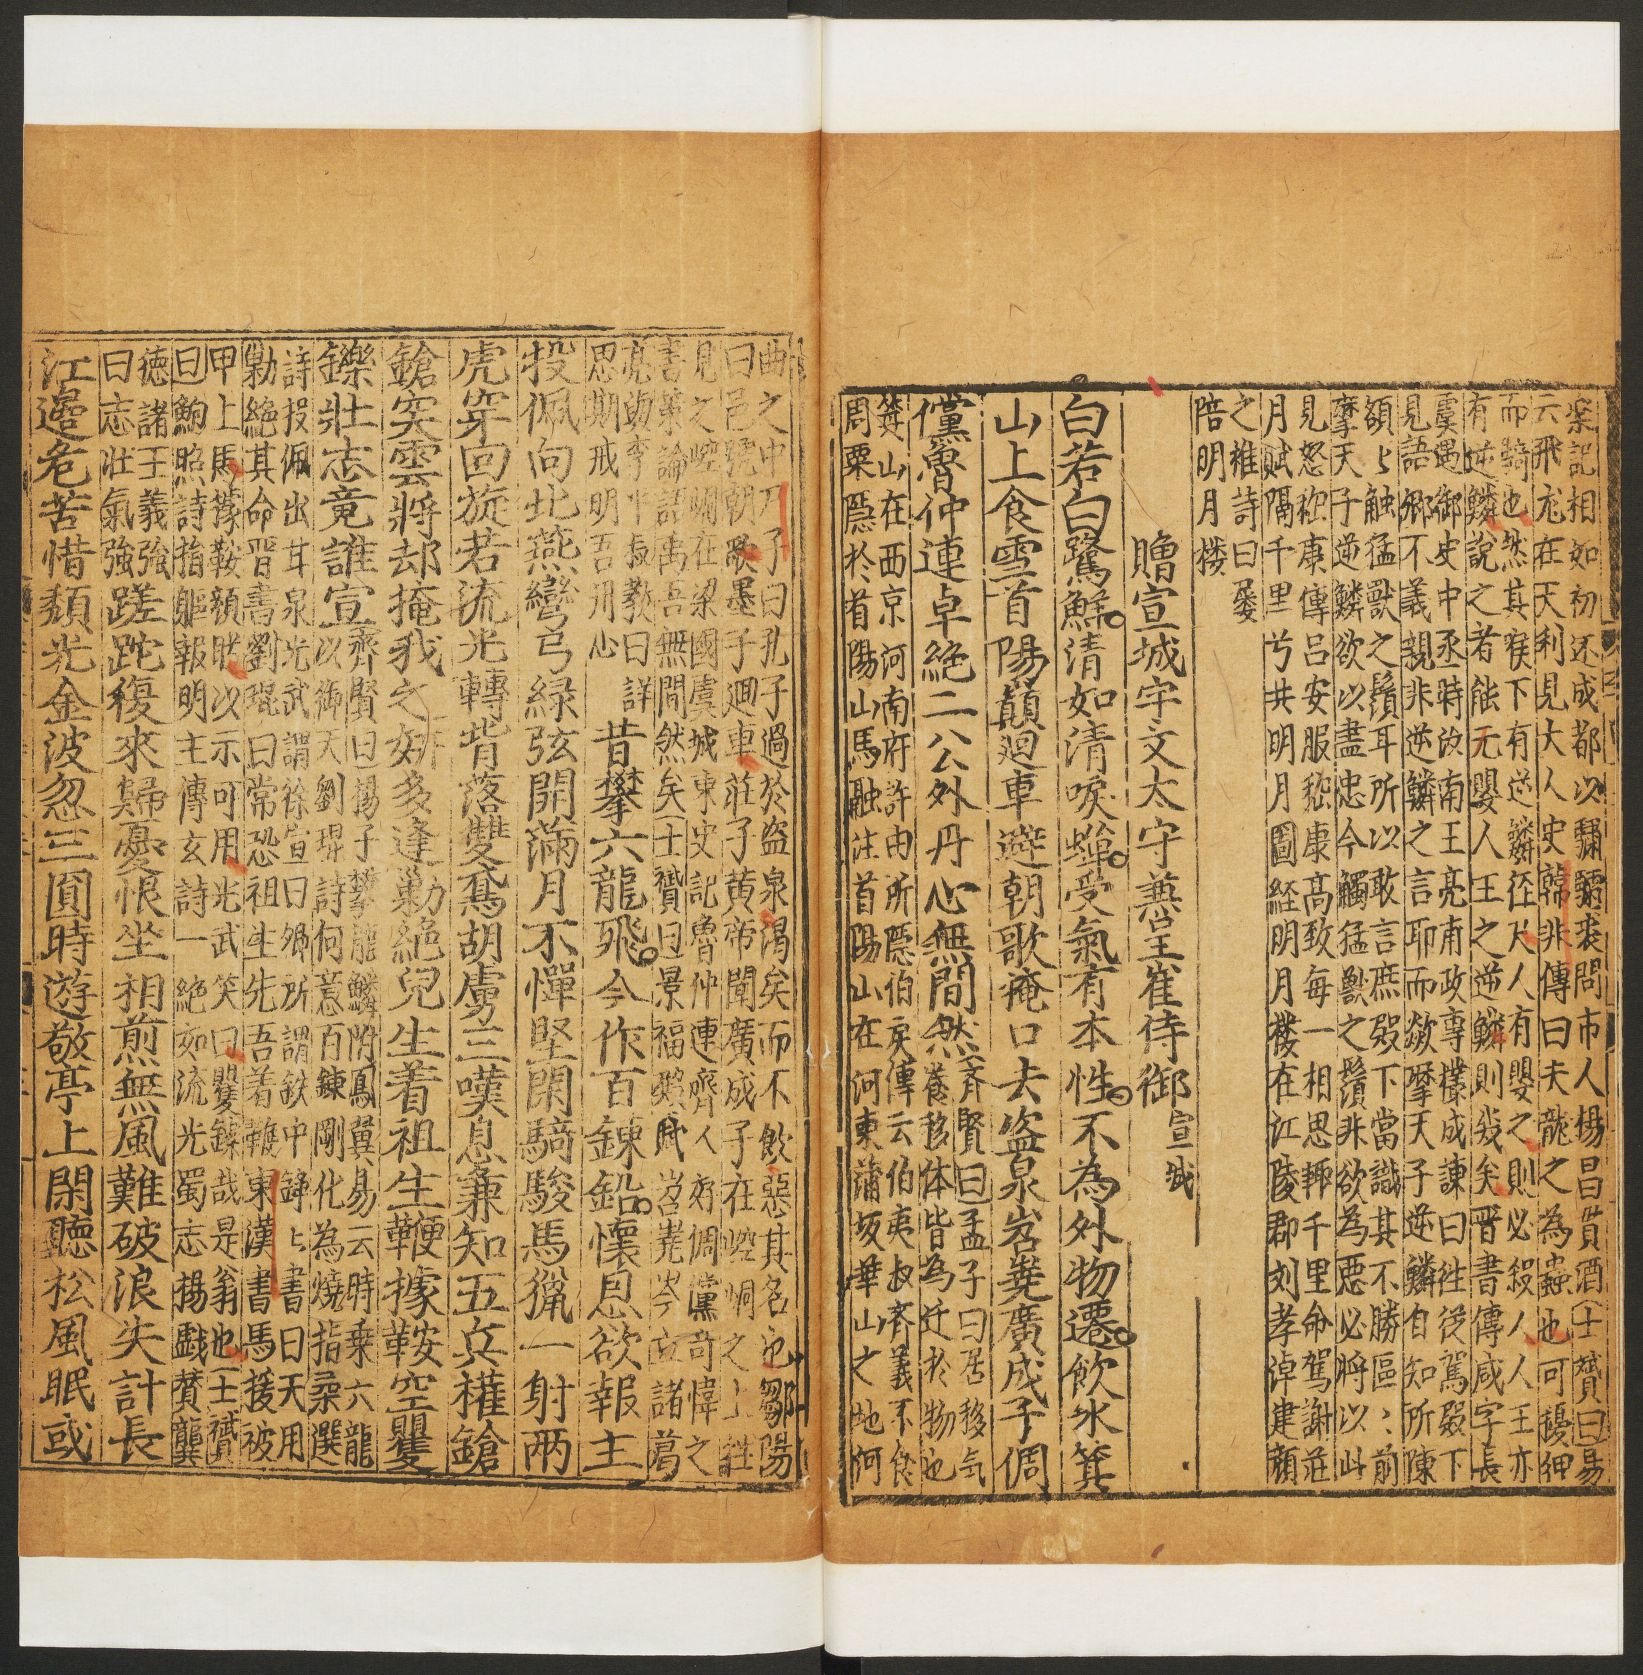 梁記相如初还成都以驌驦裘問市人楊昌貰酒士贇曰易
云飛龙在天利見大人史韓非傳曰夫龍之為蟲也可擾狎
而騎也然其喉下有逆鱗径尺人有嬰之則必殺人人王亦
有逆鱗說之者能无嬰人王之逆鱗則幾矣晋書傳咸字長
虞遇御史中丞時汝南王亮甫政專權咸諫曰徃從駕殿下
見語卿不義親非逆鱗之言耶而欻摩天子逆鱗自知所陳
額〻触猛獸之鬚耳所以敢言庶殿下當識其不勝區〻前
摩天子逆鱗欲以盡忠今觸猛獸之鬚非欲為悪必將以此
見怒嵇康傳吕安服嵇康高致每一相思輙千里命駕謝莊
月賦隔千里兮共明月圖経明月楼在江陵郡刘孝淖建顔
之推詩曰屡
陪明月楼
贈宣城宇文太守兼呈崔侍御宣城
白若白鷺鮮清如清唳蟬受氣有本性不為外物遷飲氷箕
山上食雪首陽巓廻車避朝歌掩口去盗泉岧嶤廣成子倜
儻魯仲連卓絶二八公外丹心無間然
斉賢曰孟子曰居移气
養移体皆為迁扵物也
箕山在西京河南府許由所隱伯夷傳云伯夷叔斉義不食
周粟隱扵首陽山馬融注首陽山在河東蒲坂華山之地河
曲之中刀子曰孔子過扵盗泉渴矣而不飲惡其名也鄒陽
曰邑號朝歌墨子廻車莊子黄帝聞廣成子在崆峒之上往
見之崆峒在梁國虞城東史記魯仲連齊人好倜儻奇偉之
書策論語禹吾無間然矣士贇曰景福殿賦岧嶤岑立諸葛
亮勅李平叔教曰詳
思期戒明吾用心
昔攀六龍飛今作百鍊鉛懷恩欲報主
投佩向北燕彎弓緑弦開滿月不憚堅閑騎駿馬獵一射兩
虎穿回旋若流光轉背落雙鳶胡虜三嘆息兼知五兵權鎗
鎗突雲將却掩我之妍多逢勦絶兒生着祖生鞭據鞍空矍
鑠壯志竟誰宣
齊賢曰揚子攀龍鱗附鳳翼易云時乗六龍
以御天劉琨詩何意百鍊剛化為燒指柔選
詩投佩出甘泉光武謂徐宣曰卿所謂鉄中錚〻書曰天用
勦絶其命晋書劉琨曰常恐祖生先吾着鞭東漢書馬援被
甲上馬據鞍顧眄以示可用光武笑曰矍鑠哉是翁也士贇
曰鮑照詩指軀報明主傳玄詩一絶如流光蜀志揚戯賛龔
徳諸王義強
曰志壯氣強
蹉跎復來歸憂恨坐相煎無風難破浪失計長
江邉危苦惜頽光金波忽三圓時遊敬亭上閑聽松風眠或